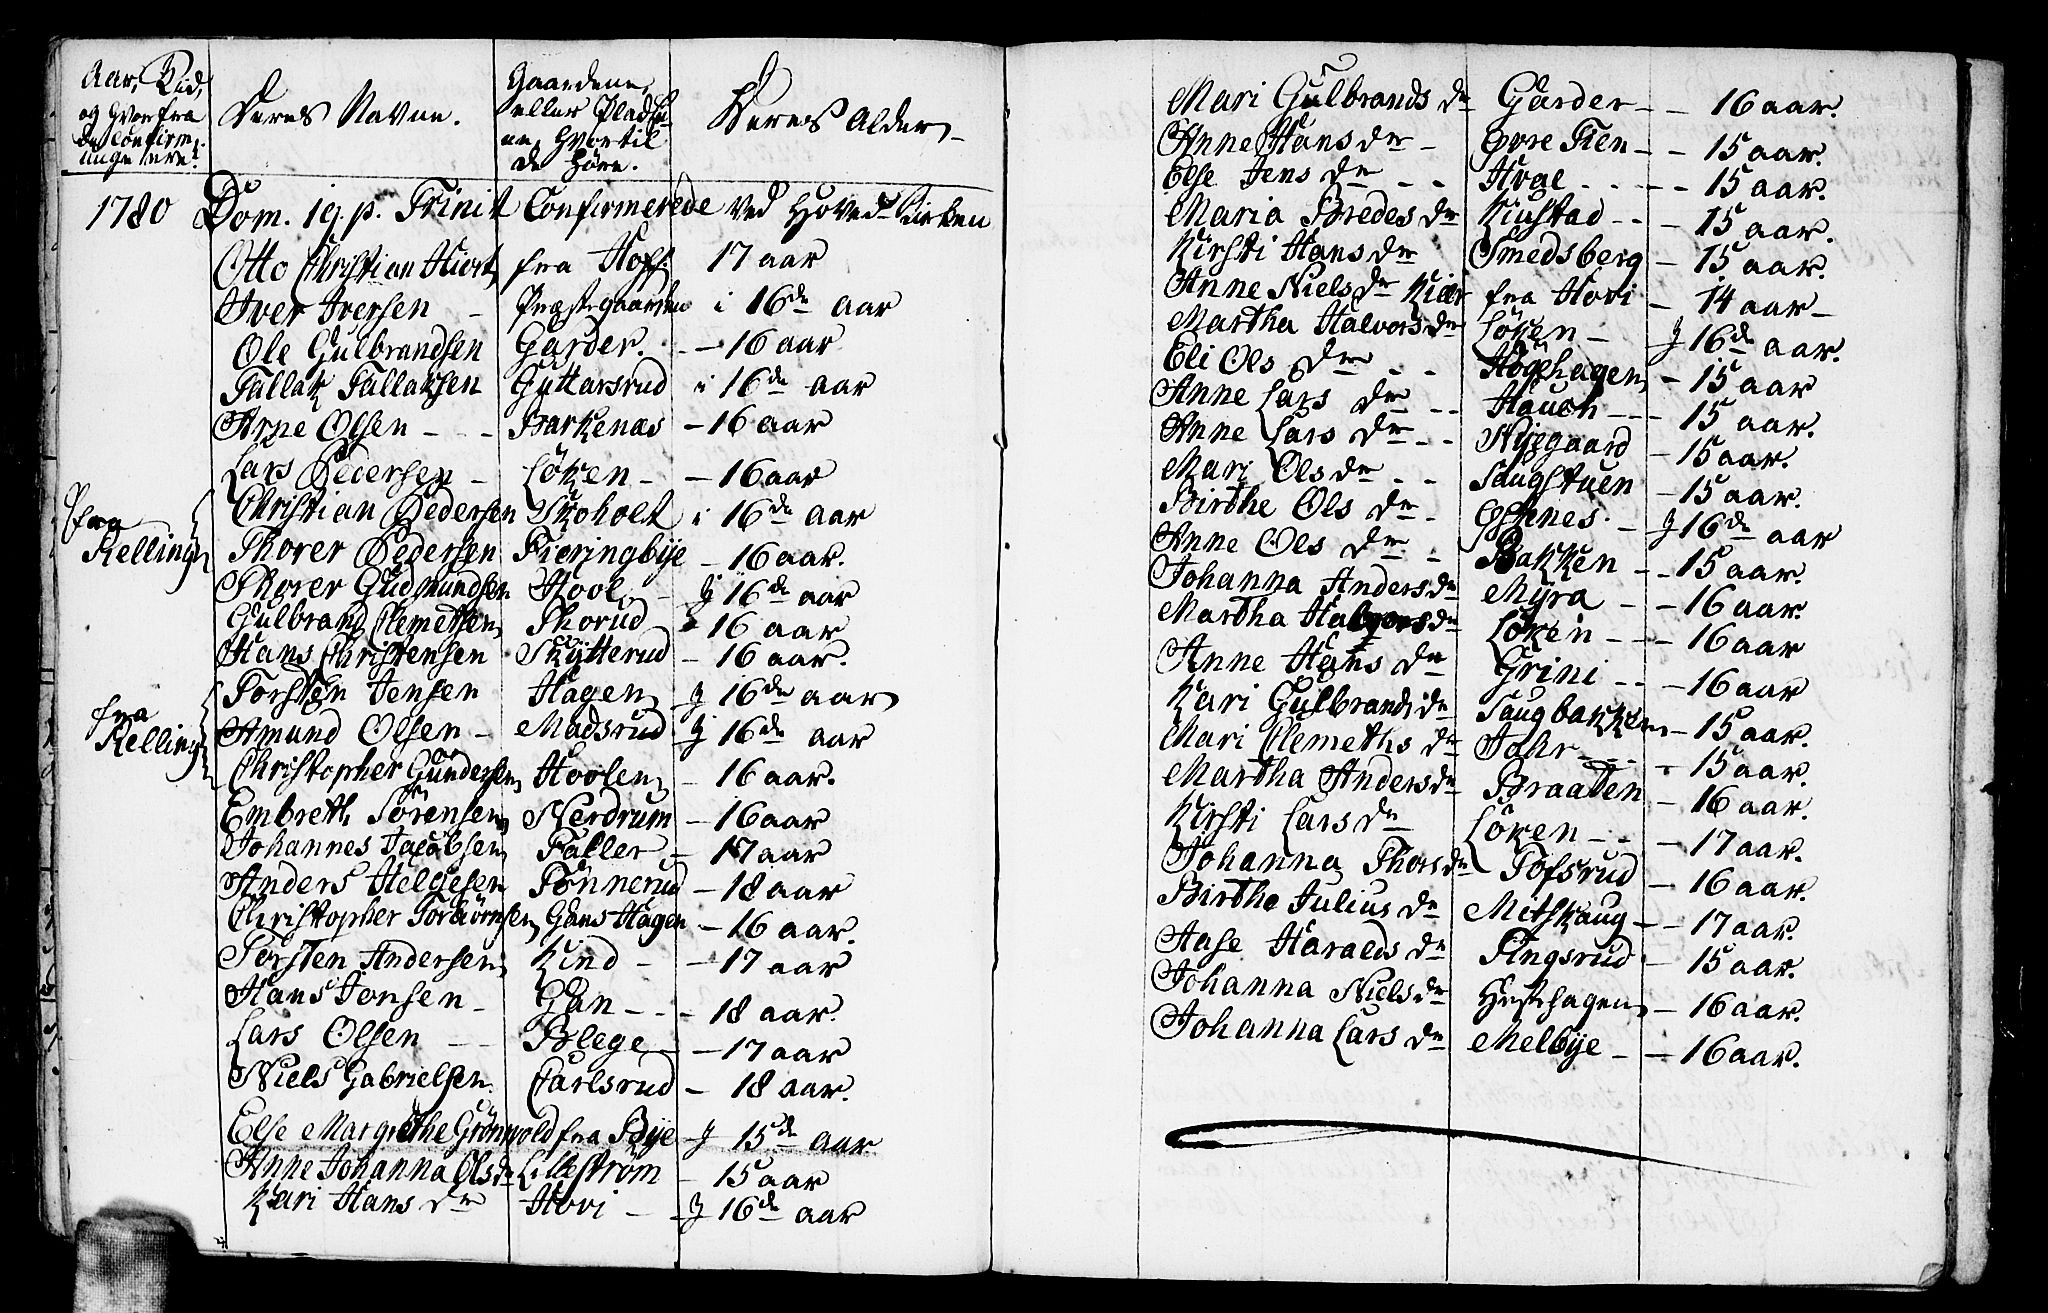 Aar, Tid,
og hvorfra
de Confirm.
unge ere.
Deres Navne.
Gaardene,
eller Pladse
ne, hvortil
de höre.
Deres Alder
1780 Dom. 19. p. Trinit Confirmerede ved Hoved Kirken
Otto Christian Hiort fra Hoff 17 aar
Iver Iversen - Præstegaarden i 16de aar
Ole Gulbrandsen Garder. - 16 aar
Tallak Tallaksen Guttarsrud i 16de aar
Arne Olsen - - - Barkenæs - 16 aar
Lars Pedersen - Löken - - 16 aar
fra Relling Christian Pedersen Skoholt i 16de aar
Thorer Pedersen Fieringbye - 16 aar.
Thorer Gudmundsen Hool - J 16de aar
Gulbrand Clemetsen Thorud 16 aar
Hans Christensen Skytterud - 16 aar.
fra Relling Torsten Jensen Hagen J 16de aar
Amund Olsen - Madsrud J 16de aar
Christopher Gundersen Hoolen - 16 aar.
Embreth Sörensen Nerdrum - 16 aar
Johannes Jacobsen Faller - 17 aar
Anders Helgesen Tönnerud - 18 aar
Christopher Torbiörnsen Gans Hagen - 16 aar.
Torsten Andersen Kind - - 17 aar
Hans Jonsen - Gan - - - 18 aar.
Lars Olsen - - Blege - 17 aar
Niels Gabrielsen Carlsrud - 18 aar.
Else Margrethe Grönvold fra Bye J 15de aar
Anne Johanna Olsdr Lilleström - 15 aar
Kari Hans dr Hovi - J 16de aar
Mari Gulbrands dr Garder - - 16 aar.
Anne Hans dr - Øvre Tien - - 15 aar.
Else Jens dr - - Hval - - - - 15 aar.
Maria Bredes dr Kiustad - - - 15 aar.
Kirsti Hans dr Smedsberg - 15 aar.
Anne Niels dr Kiær fra Hovi - 14 aar -
Martha Halvors dr Löken - J 16de aar.
Eli Ols dr - - Högehagen - 15 aar
Anne Lars dr - - Hauch - - - 15 aar.
Anne Lars dr - - Nygaard - 15 aar.
Mari Ols dr - - Saugstuen - 15 aar.
Birthe Ols dr - Efsnes. - J 16de aar
Anne Ols dr - Bakken - - 15 aar.
Johanna Anders dr Myra - - 16 aar.
Martha Halvors dr Löken - - - 16 aar
Anne Hans dr Grini - - - 16 aar
Kari Gulbrands dr Saugbakken - 15 aar.
Mari Clemeths dr Tohr - - 15 aar.
Martha Anders dr Braaten - 16 aar.
Kirsti Lars dr Löken - - - 17 aar.
Johanna Thors dr Tofsrud - 16 aar.
Birthe Julius dr Mitskaug - - 17 aar.
Aase Haralds dr Tingsrud - 15 aar.
Johanna Niels dr Hestehagen - 16 aar.
Johanna Lars dr Melbye - - 16 aar.